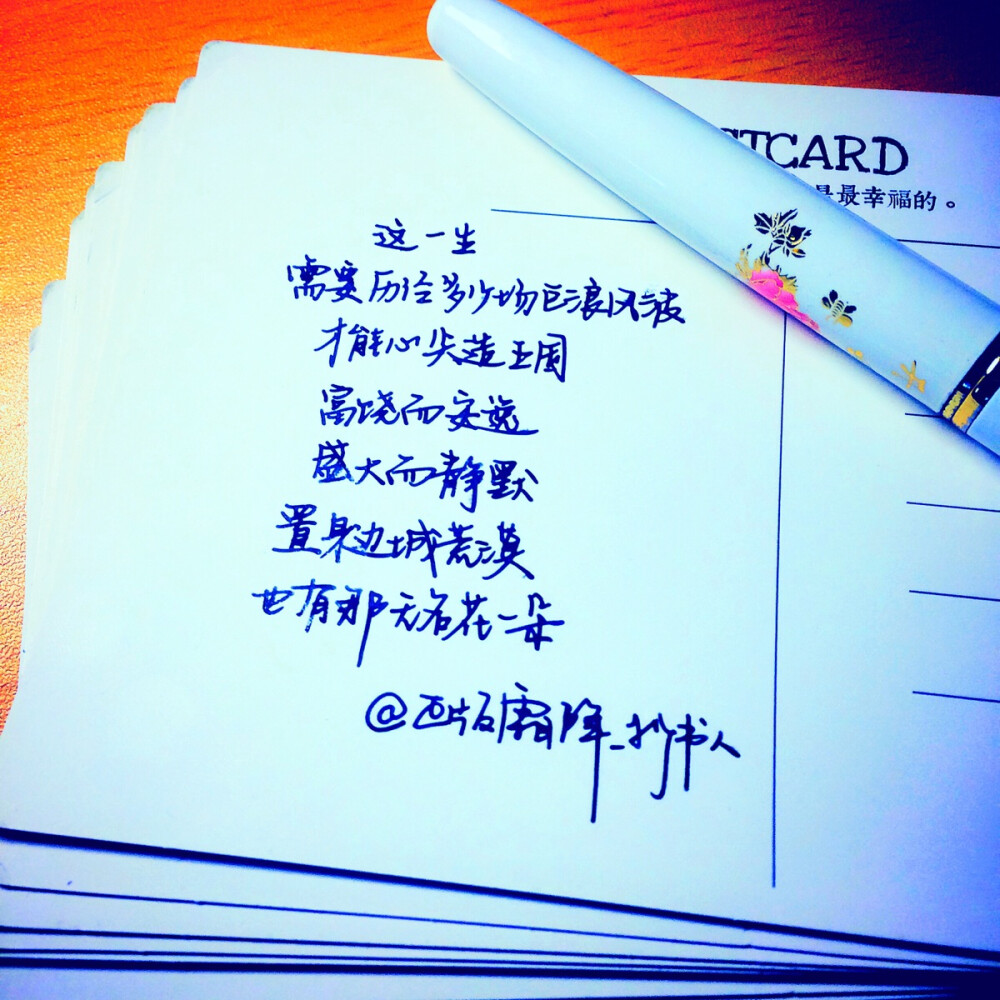 TCARD
最幸福的。
这一生
需要历经多少场巨浪风波
才能心尖造王国
富饶而安逸
盛大而静默
置身边城荒漠
也有那无名花一朵
版霜降_抄书人